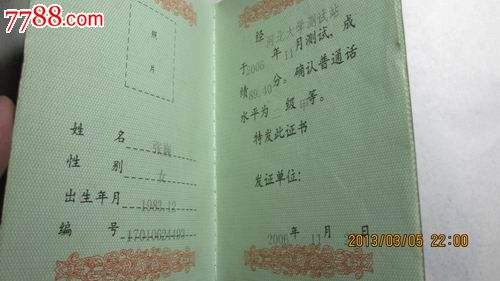 7788.com
照
片
姓 名 张巍
性 别 女
出生年月 1983.12
编 号
经 河北大学测试站
于2006年11月测试，成
绩89.40分。确认普通话
水平为二级甲等。
特发此证书
发证单位：
2006年11月 日
2013/03/05 22:00